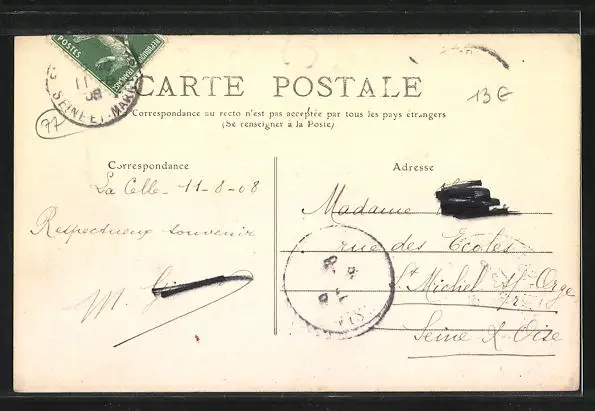 POSTES
11
08
SEINE-ET-MARNE
CARTE POSTALE
13€
77
Correspondance au recto n'est pas acceptée par tous les pays étrangers
(Se renseigner à la Poste)
Correspondance
La Celle - 11-8-08
Respectueux souvenir
M.
Adresse
Madame
rue des Ecoles
St Michel s/-Orge
Seine & Oise